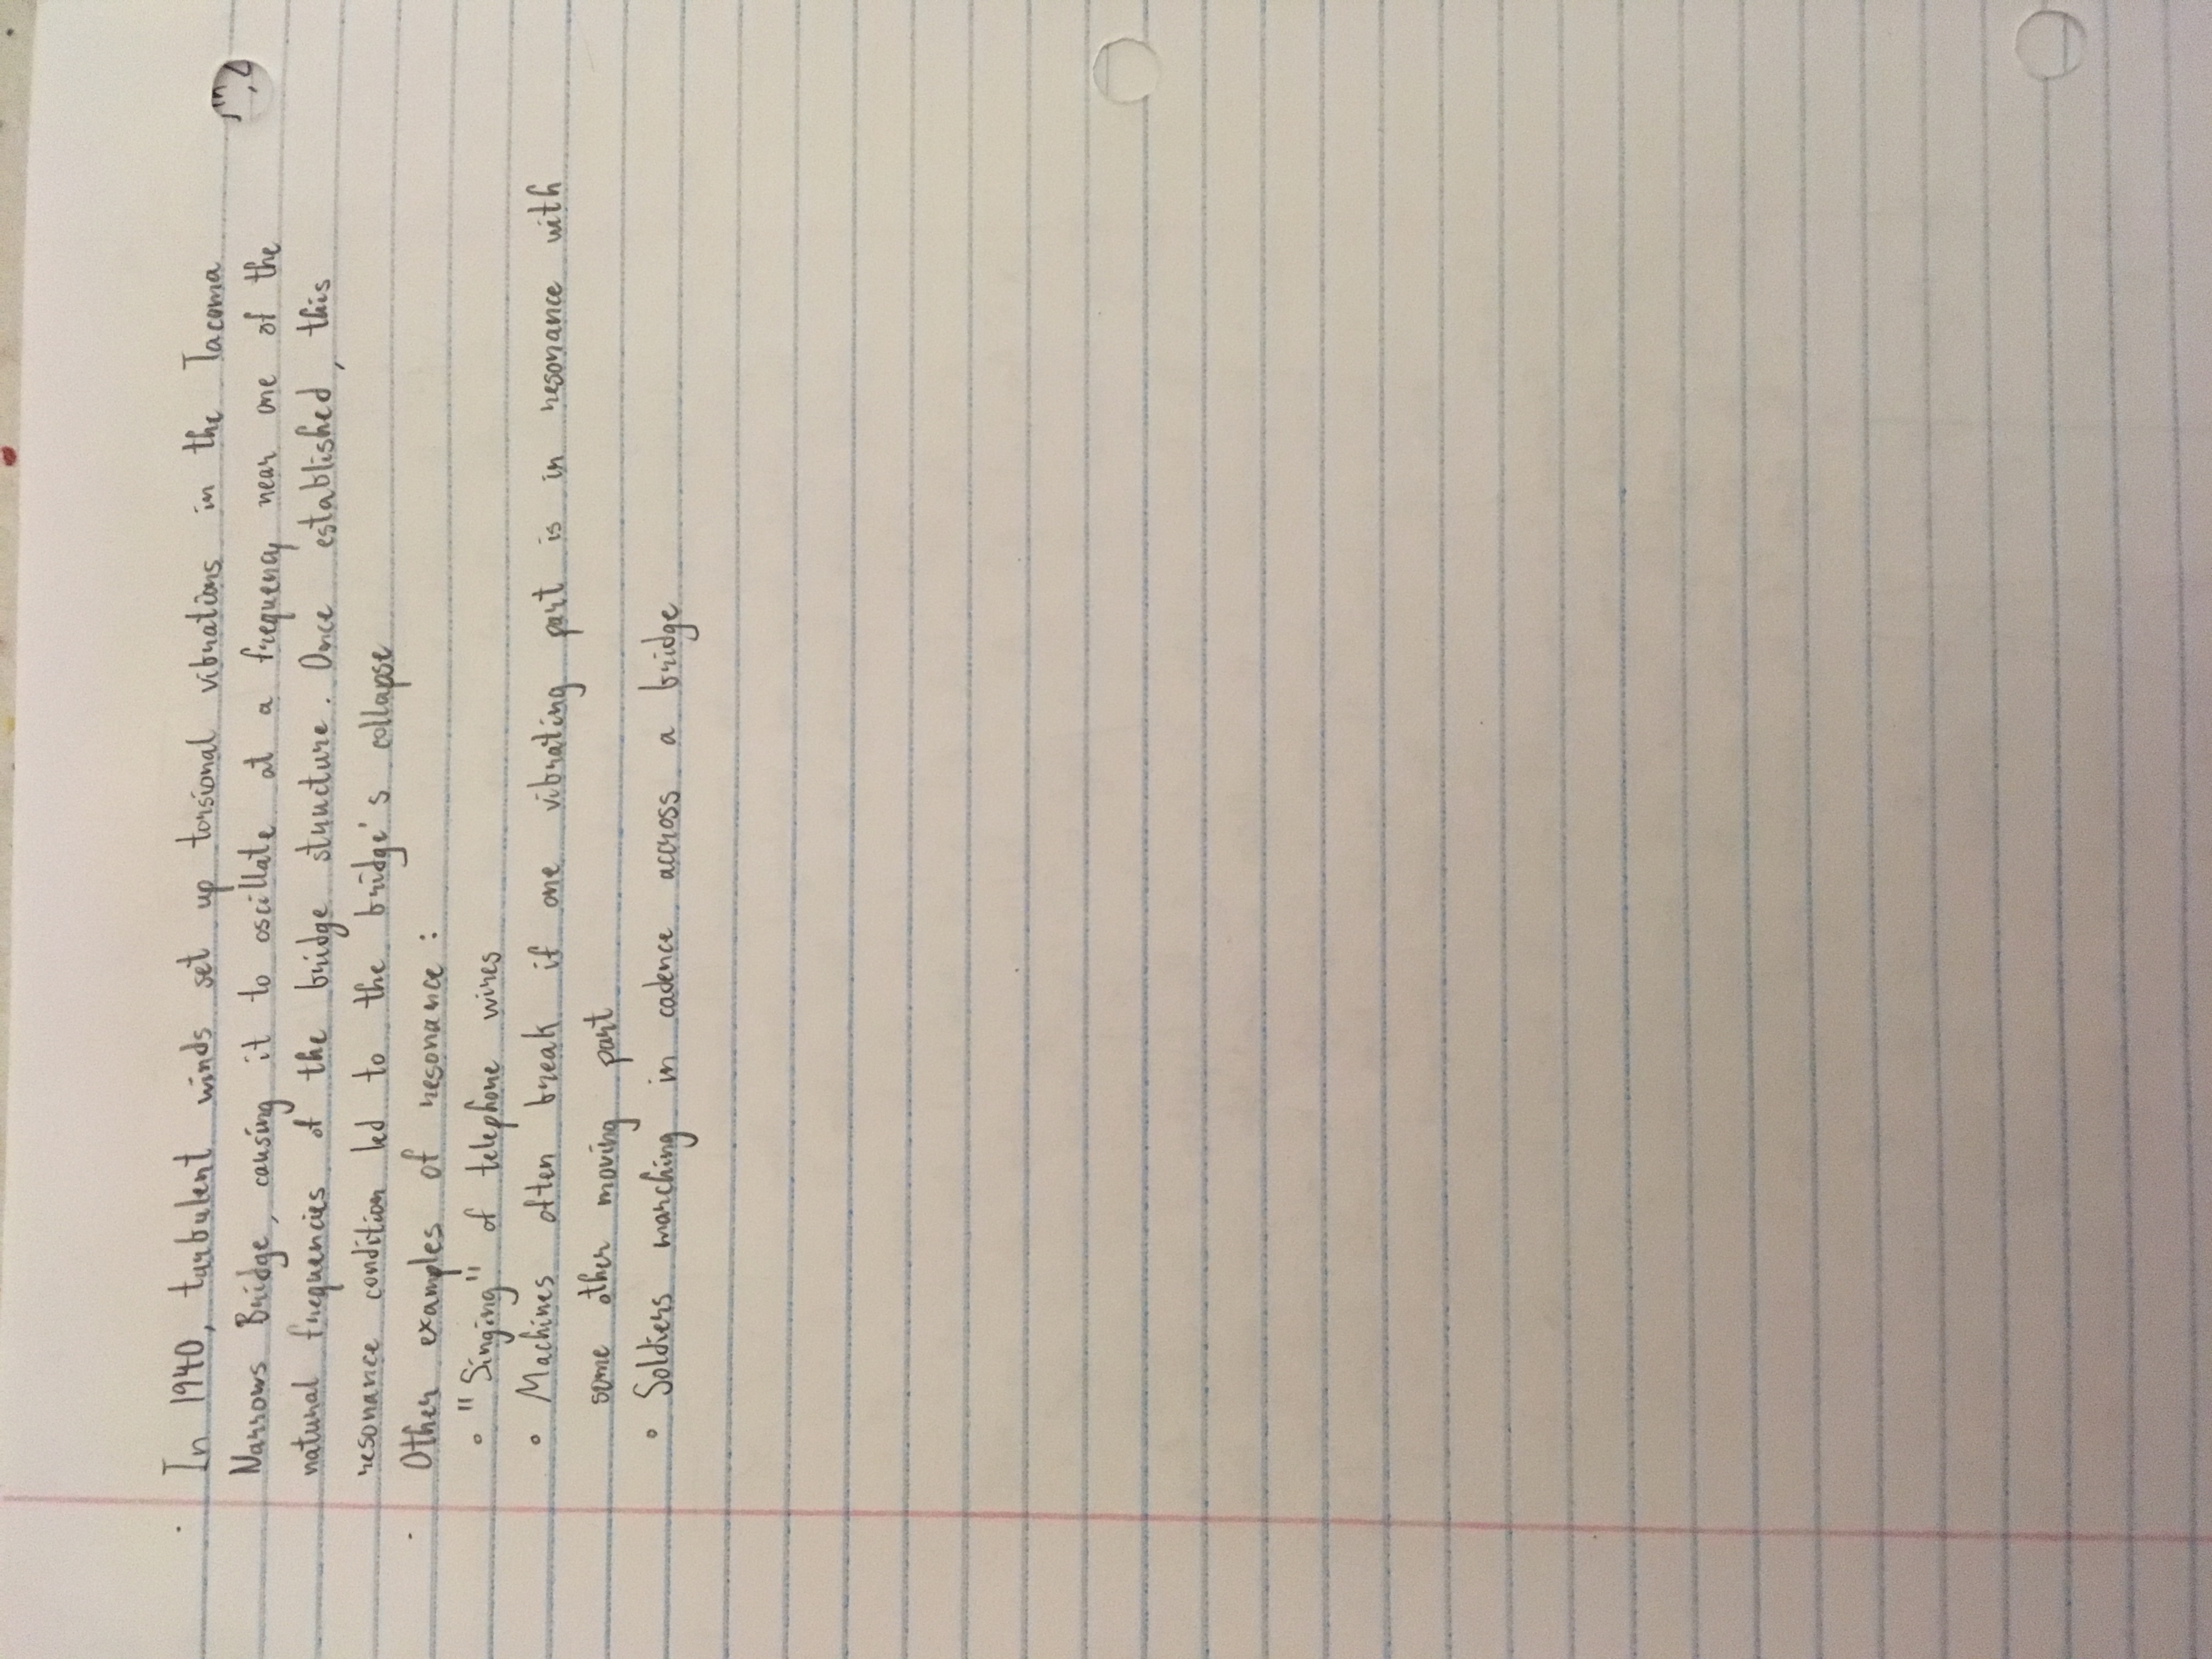 · In 1940, turbulent winds set up torsional vibrations in the Tacoma
Narrows Bridge, causing it to oscillate at a frequency near one of the
natural frequencies of the bridge structure. Once established, this
resonance condition led to the bridge's collapse
· Other examples of resonance:
∘ "Singing" of telephone wires
∘ Machines often break if one vibrating part is in resonance with
some other moving part
∘ Soldiers marching in cadence accross a bridge